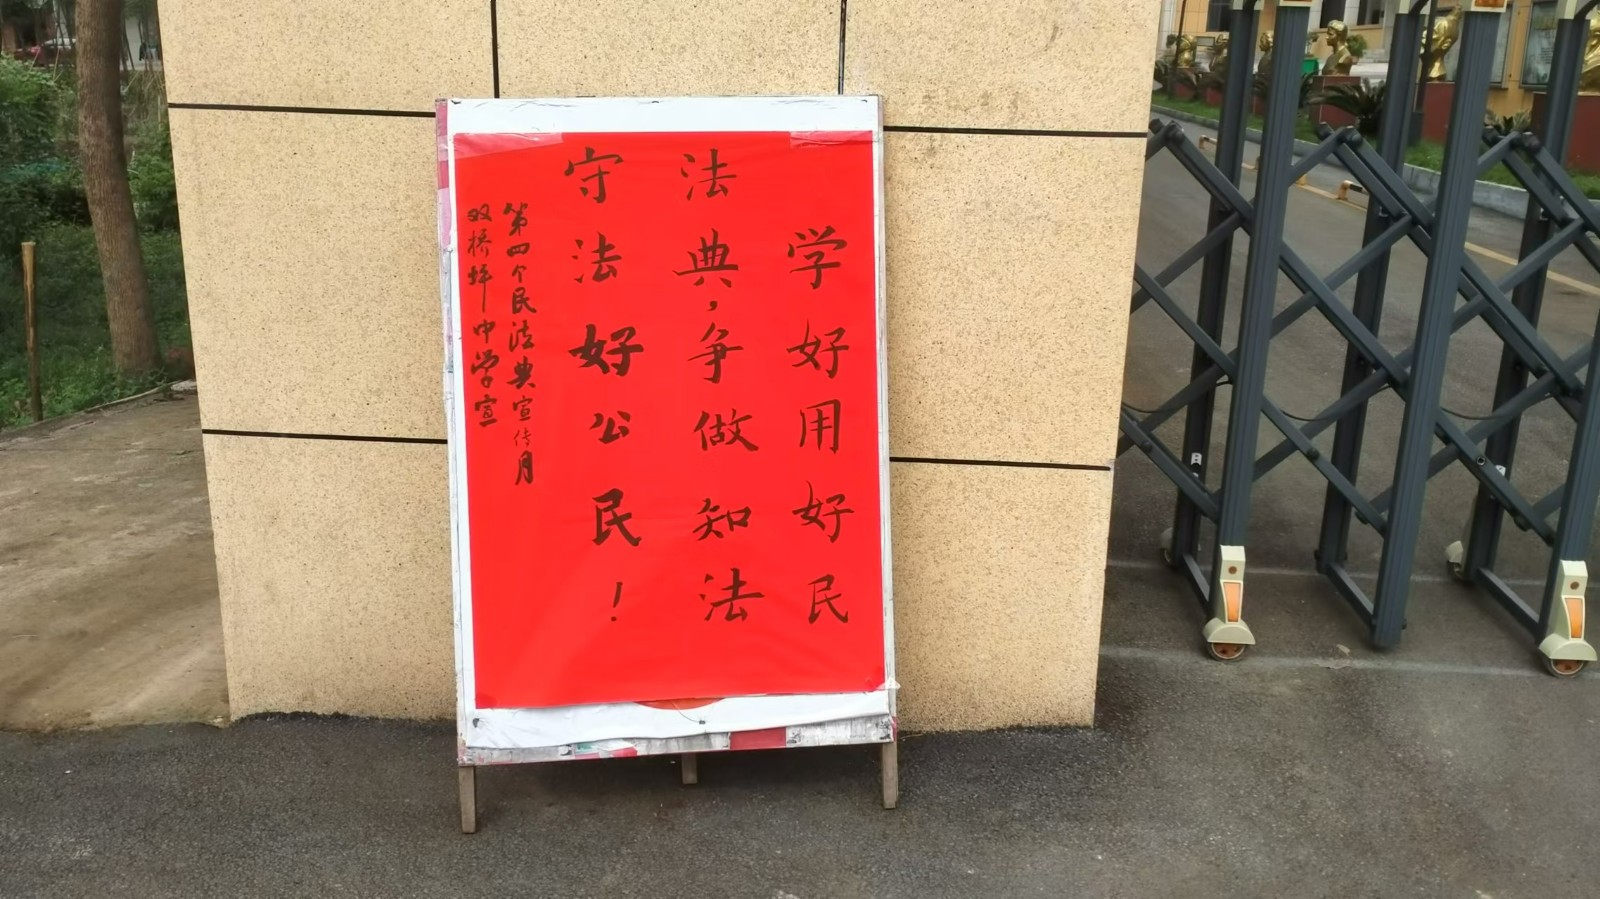 学好用好民
法典，争做知法
守法好公民！
第四个民法典宣传月
双桥坪中学宣